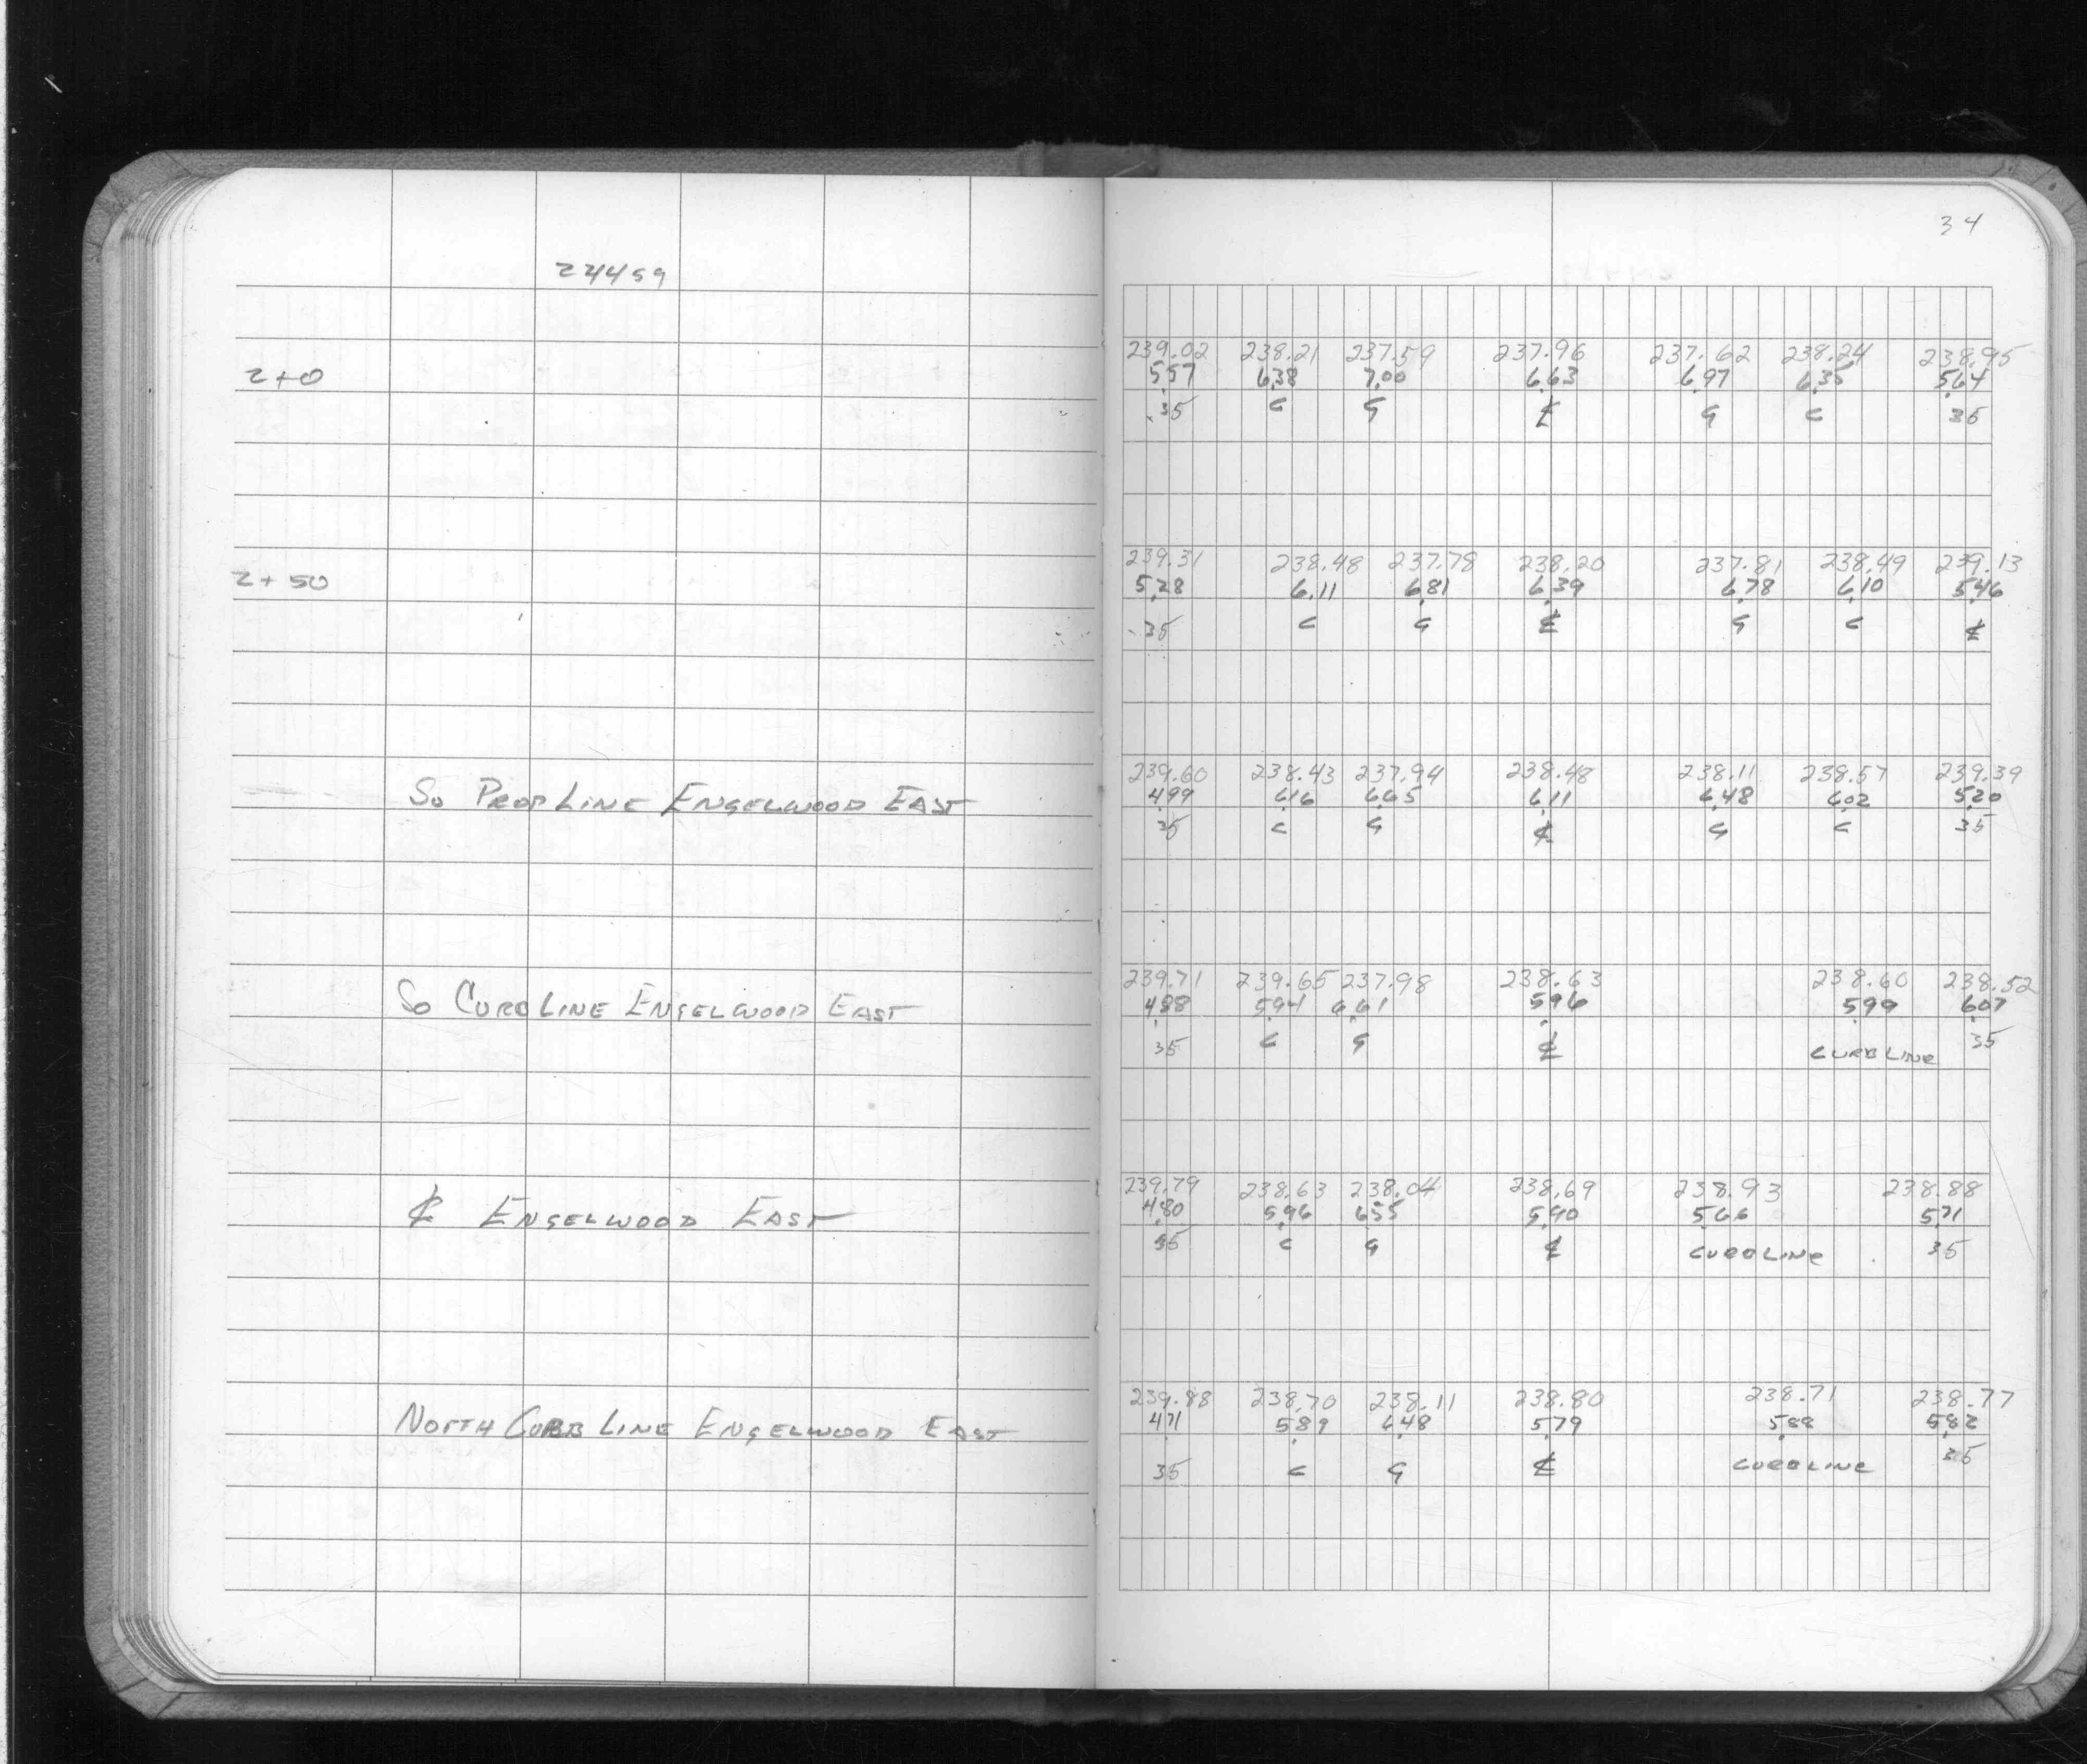 34
24459
239.02 238.21 237.59 237.96 237.62 238.24 238.95
2+0 5.57 6.38 7.00 6.63 6.97 6.35 5.64
35 C G ℄ G C 35
239.31 238.48 237.78 238.20 237.81 238.49 239.13
2+50 5.28 6.11 6.81 6.39 6.78 6.10 5.46
35 C G ℄ G C ℄
239.60 238.43 237.94 238.48 238.11 238.57 239.39
So Prop Line Engelwood East 4.99 6.16 6.65 6.11 6.48 6.02 5.20
35 C G ℄ G C 35
239.71 239.65 237.98 238.63 238.60 238.52
So Curb Line Engelwood East 4.88 5.94 6.61 5.96 5.99 6.07
35 C G ℄ Curb Line 35
239.79 238.63 238.04 238.69 238.93 238.88
℄ Engelwood East 4.80 5.96 6.55 5.90 5.66 5.71
35 C G ℄ Curb Line 35
239.88 238.70 238.11 238.80 238.71 238.77
North Curb Line Engelwood East 4.71 5.89 6.48 5.79 5.88 5.82
35 C G ℄ Curb Line 35